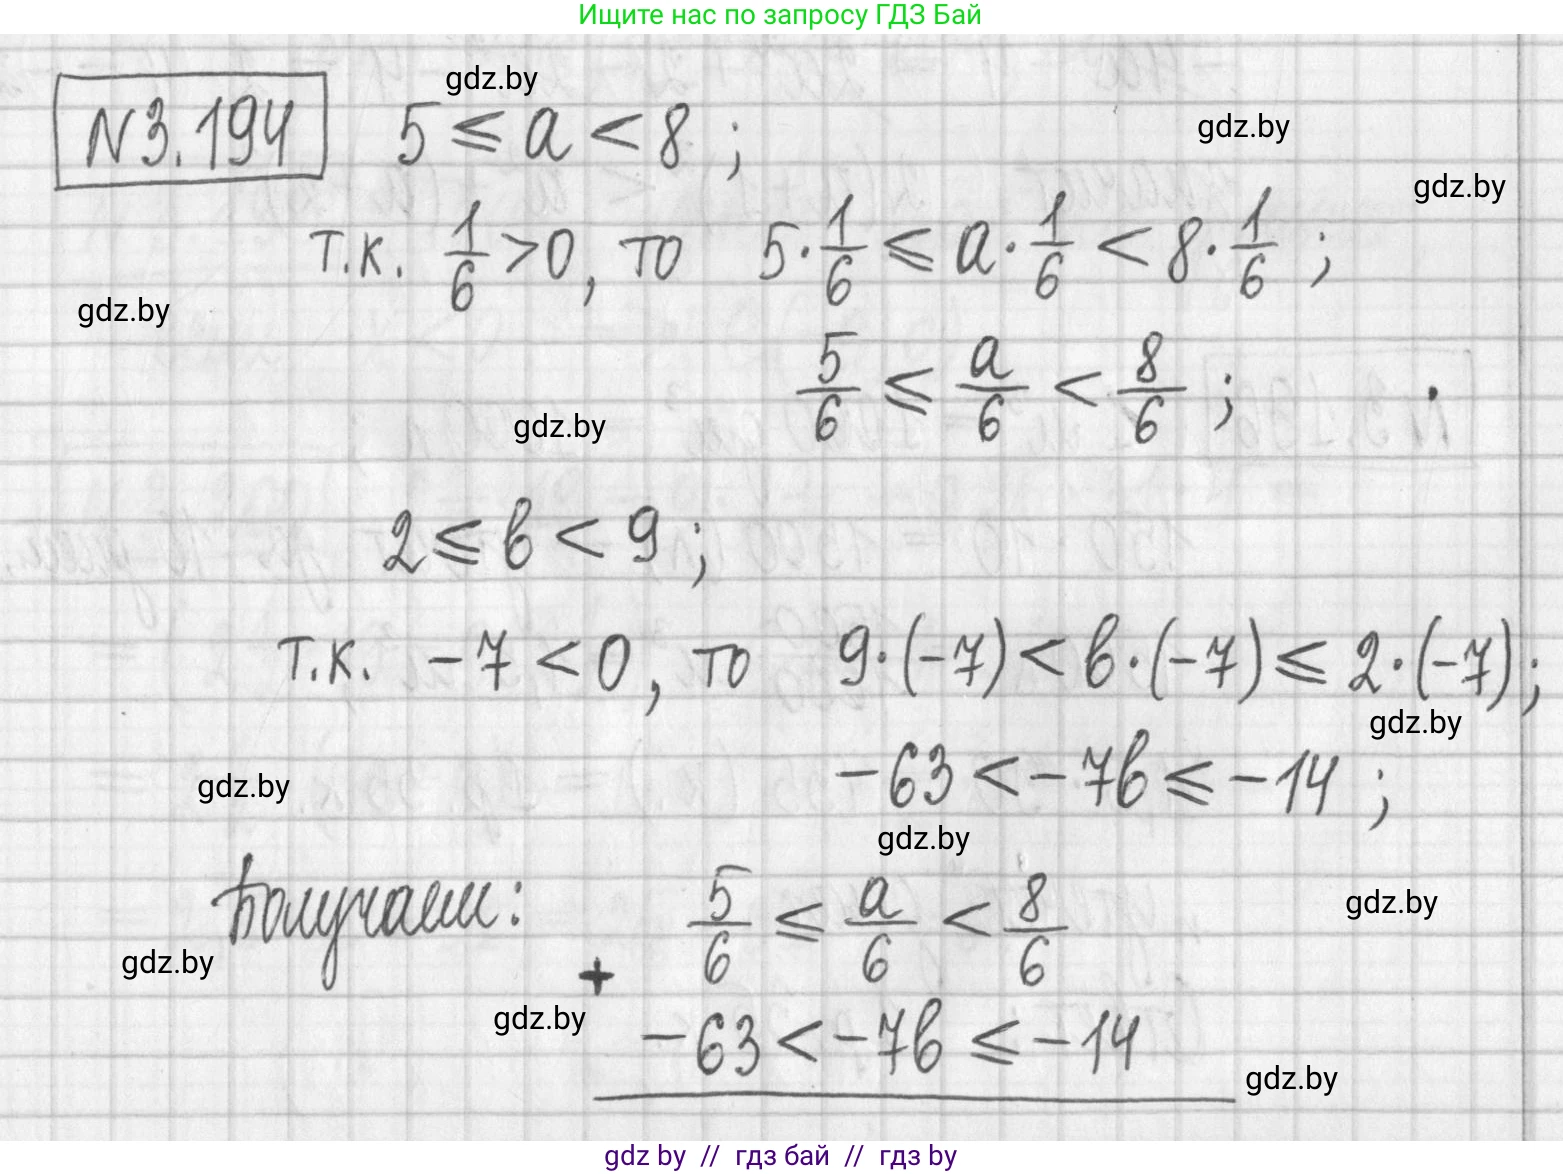 Ищите нас по запросу ГДЗ Бай
gdz.by
N3.194 5 ≤ a < 8 ;
gdz.by
gdz.by
т.к. 1/6 > 0, то 5·1/6 ≤ a·1/6 < 8·1/6 ;
gdz.by
5/6 ≤ a/6 < 8/6 ;
gdz.by
2 ≤ в < 9 ;
т.к. -7 < 0, то 9·(-7) < в·(-7) ≤ 2·(-7) ;
gdz.by
-63 < -7в ≤ -14 ;
gdz.by
gdz.by
Получаем: 5/6 ≤ a/6 < 8/6
gdz.by
gdz.by
+
gdz.by
-63 < -7в ≤ -14
gdz.by
gdz by // гдз бай // гдз by